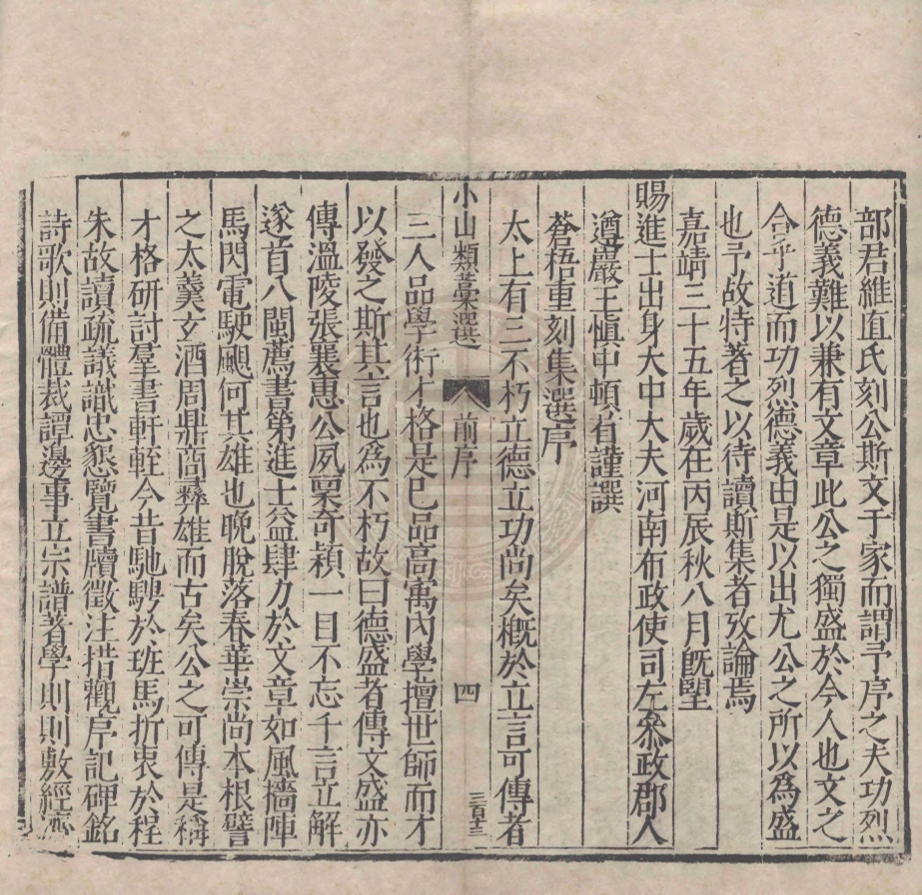 部君維直氏刻公斯文于家而謂予序之夫功烈
德義難以兼有文章此公之獨盛於今人也文之
合乎道而功烈德義由是以出尤公之所以為盛
也予故特著之以待讀斯集者攷論焉
嘉靖三十五年歲在丙辰秋八月旣朢
賜進士出身大中大夫河南布政使司左叅政郡人
遵巖王慎中頓首謹譔
蒼梧重刻集選序
太上有三不朽立德立功尚矣概於立言可傳者
小山類藁選 前序 四 三百十三
三人品學術才格是巳品高寓內學擅世師而才
以發之斯其言也為不朽故曰德盛者傳文盛亦
傳溫陵張襄惠公夙稟奇穎一目不忘千言立解
遂首八閩薦書第進士益肆力於文章如風檣陣
馬閃電駛颷何其雄也晚脫落春華崇尚本根譬
之太羹玄酒周鼎商彝雄而古矣公之可傳是稱
才格研討羣書軒輊今昔馳騁於班馬折衷於程
朱故讀疏議識忠懇覽書牘徵注措觀序記碑銘
詩歌則備體裁譚邊事立宗譜著學則則敷經濟